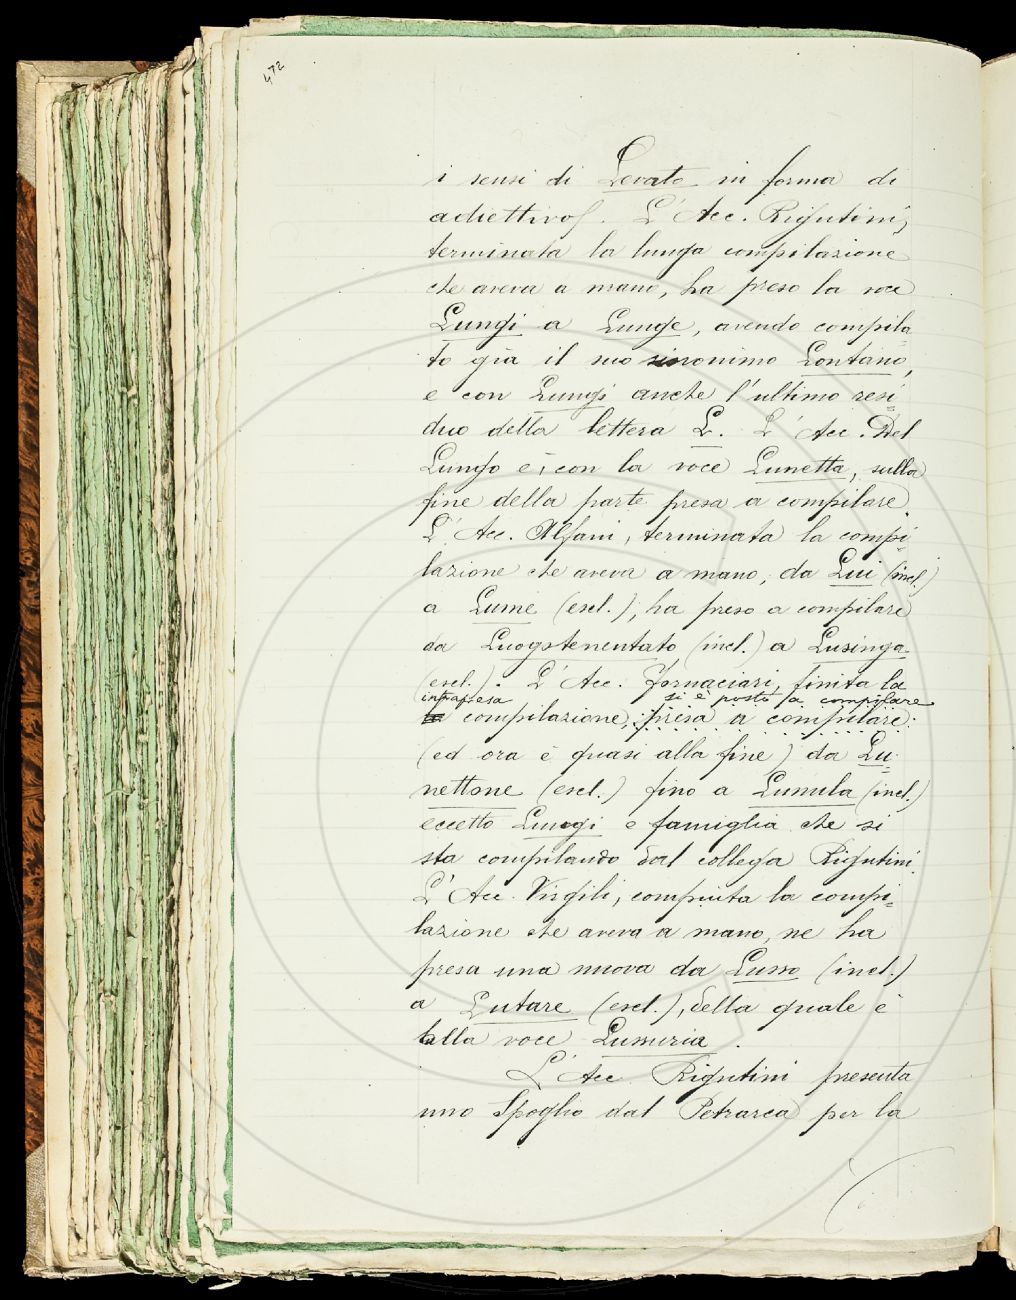 472
i sensi di Levato in forma di
adiettivo. L'Acc. Rigutini,
terminata la lunga compilazione
che aveva a mano, ha preso la voce
Lungi a Lunge, avendo compila
to già il suo sinonimo Lontano,
e con Lungi anche l'ultimo resi
duo della lettera L. L'Acc. Del
Lungo è, con la voce Lunetta, sulla
fine della parte presa a compilare.
L'Acc. Alfani, terminata la compi
lazione che aveva a mano, da Lui (incl.)
a Lume (escl.), ha preso a compilare
da Luogotenentato (incl.) a Lusinga
(escl.). L'Acc. Fornaciari, finita la
intrapresa si è posto a compilare
la compilazione, presa a compilare
(ed ora è quasi alla fine) da Lu
nettone (escl.) fino a Lunula (incl.)
eccetto Lungi e famiglia che si
sta compilando dal collega Rigutini.
L'Acc. Virgili, compiuta la compi=
lazione che aveva a mano, ne ha
presa una nuova da Lusso (incl.)
a Lutare (escl.), della quale è
alla voce Lussuria.
L'Acc Rigutini presenta
uno Spoglio dal Petrarca per la